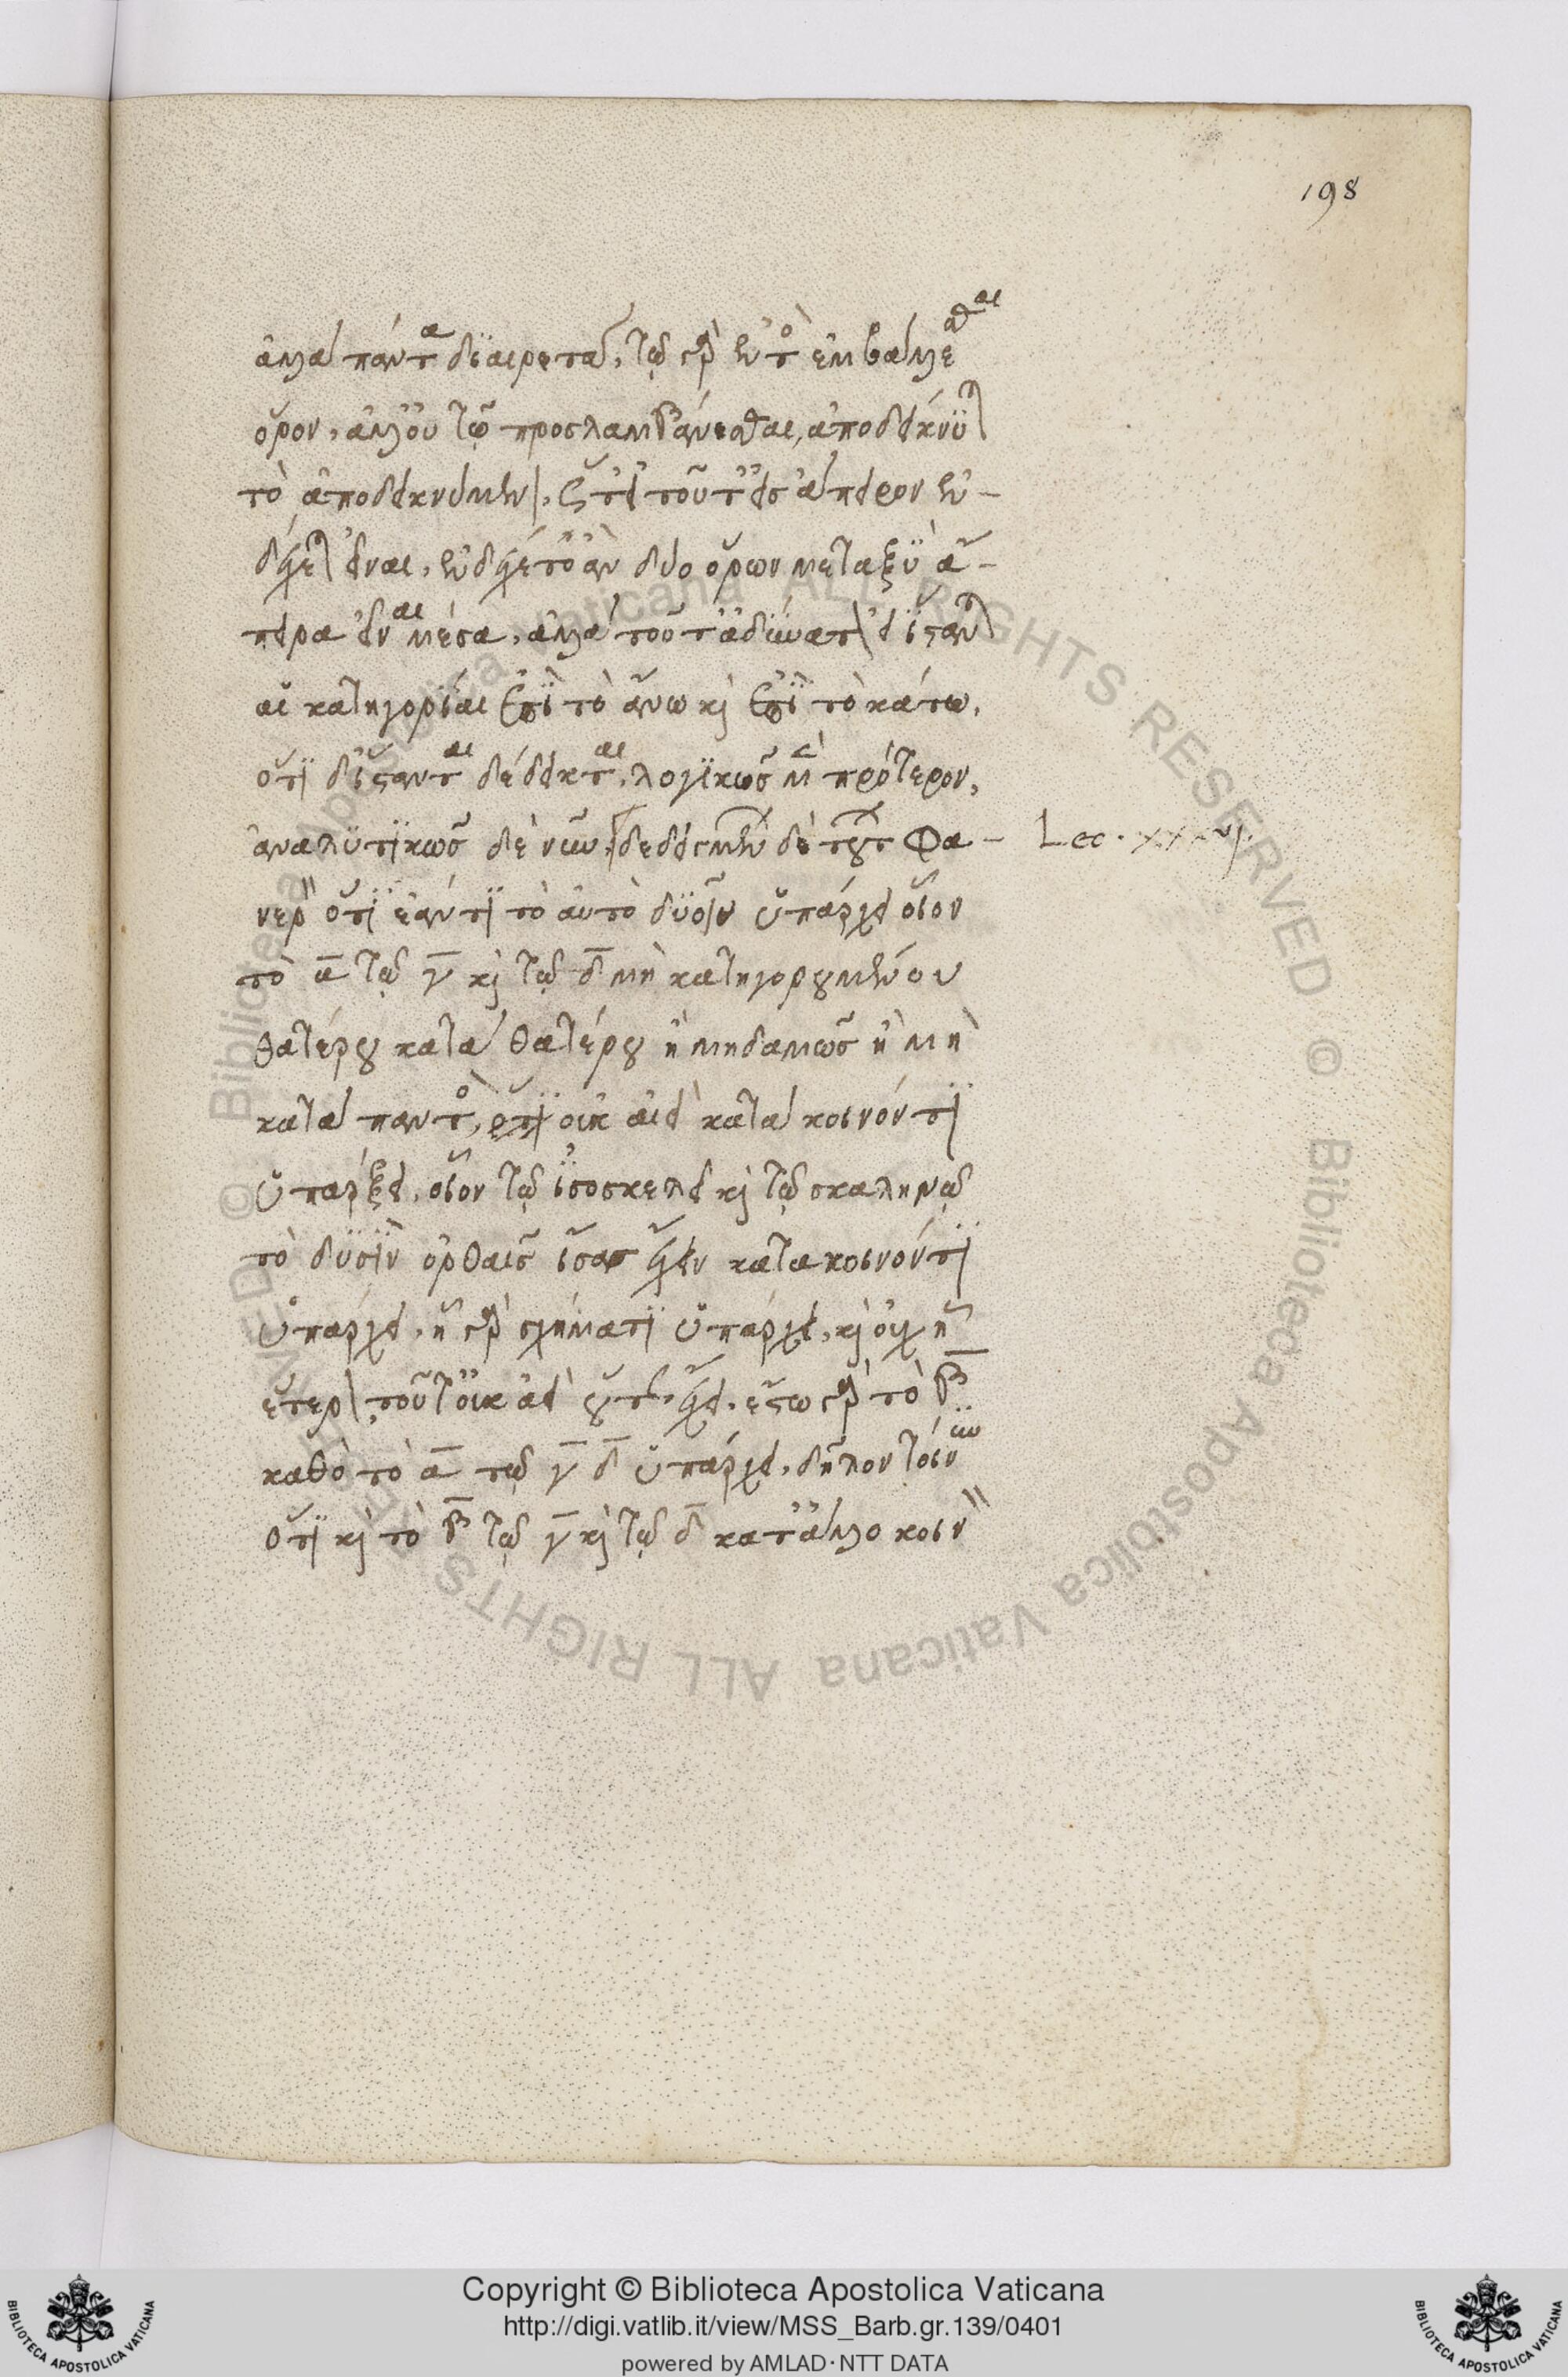 198
ἀλλὰ πάντα διαιρετά. τῷ γὰρ ἐντὸς ἐμβάλλεσθαι
ὅρον, ἀλλ' οὐ τῷ προσλαμβάνεσθαι, ἀποδείκνυται
τὸ ἀποδεικνύμενον, ὥστ' εἰ τοῦτ' εἰς ἄπειρον ἐν-
δέχεται ἰέναι, ἐνδέχετ' ἂν δύο ὅρων μεταξὺ ἄ-
πειρα εἶναι μέσα. ἀλλὰ τοῦτ' ἀδύνατον εἰ ἵστανται
αἱ κατηγορίαι ἐπὶ τὸ ἄνω καὶ ἐπὶ τὸ κάτω.
ὅτι δ' ἵστανται δέδεικται. λογικῶς μὲν πρότερον,
ἀναλυτικῶς δὲ νῦν. δεδειγμένων δὲ τούτων φα- Lec. xxxvj.
νερὸν ὅτι ἐάν τι τὸ αὐτὸ δυσὶν ὑπάρχει οἷον
τὸ α τῷ γ καὶ τῷ δ μὴ κατηγορουμένου
θατέρου κατὰ θατέρου ἢ μηδαμῶς ἢ μὴ
κατὰ παντός, ὅτι οὐκ ἀεὶ κατὰ κοινόν τι
ὑπάρξει. οἷον τῷ ἰσοσκελεῖ καὶ τῷ σκαληνῷ
τὸ δυσὶν ὀρθαῖς ἴσας ἔχειν κατὰ κοινόν τι
ὑπάρχει. ᾗ γὰρ σχῆμά τι ὑπάρχει, καὶ οὐχ ᾗ
ἕτερον τοῦτ' οὐκ ἀεὶ οὕτως ἔχει. ἔστω γὰρ τὸ β
καθὸ τὸ α τῷ γ δ ὑπάρχει. δῆλον τοίνυν
ὅτι καὶ τὸ β τῷ γ καὶ τῷ δ κατ' ἄλλο κοινὸν
Copyright © Biblioteca Apostolica Vaticana
http://digi.vatlib.it/view/MSS_Barb.gr.139/0401
powered by AMLAD·NTT DATA
BIBLIOTECA APOSTOLICA VATICANA
BIBLIOTECA APOSTOLICA VATICANA
© Biblioteca Apostolica Vaticana ALL RIGHTS RESERVED © Biblioteca Apostolica Vaticana ALL RIGHTS RESERVED